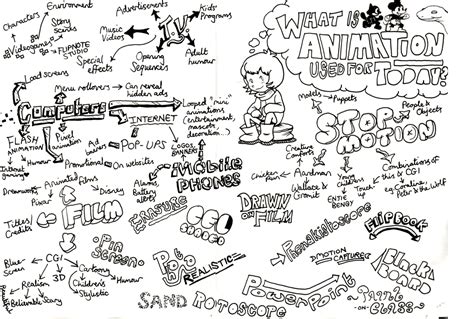 Characters
Environment
Story
scenes
Videogames
FLIPNOTE
STUDIO
Advertisements
Music
Videos
Special
effects
Opening
Sequences
T.V.
Kids
Programs
Adult
humour
WHAT IS
ANIMATION
USED FOR
TODAY?
Load screens
Menu rollovers
Can reveal
hidden ads
Computers
INTERNET
Looped "mini"
animations
(entertainment,
mascots,
decoration..)
FLASH
ANIMATION
Pixel
animation
Ad
banners
POP-UPS
LOGOS,
BANNERS
Internet
Humour
Promotional
On websites
MOBILE
PHONES
Alarms,
Battery
alerts
models
Puppets
People &
Objects
STOP
MOTION
Creature
Comforts
Chicken
Aardman
Wallace &
Gromit
Combinations of
this & CGI
eg Coraline,
Peter & the Wolf
Dreamworks
Animated
Films
Pixar
Disney
FILM
Titles/
Credits
ERASURE
CEL
SHADED
DRAWN
ON FILM
Phenakistoscope
FLIPBOOK
Pin
Screen
Blue
Screen
CGI
3D
Realism
Believable
Scary
Cartoony
Humour
Children's
Stylistic
Photo
REALISTIC
MOTION
CAPTURE
Black
BOARD
PowerPoint
SAND
ROTOSCOPE
PAINT
-ON-
GLASS